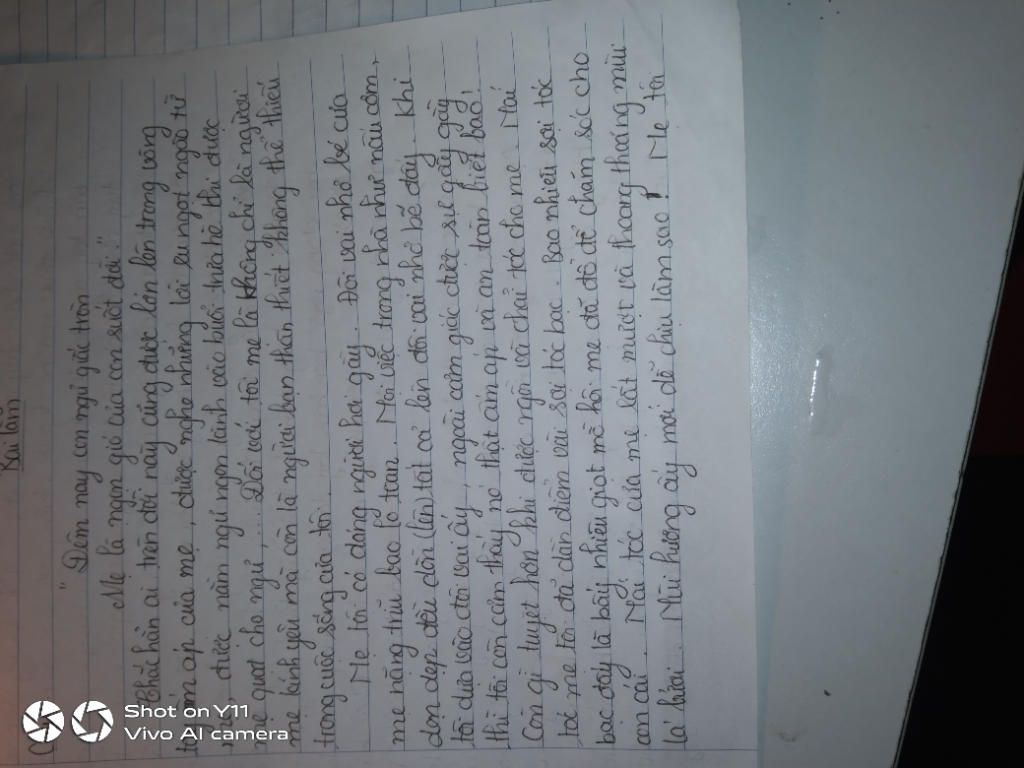 Bài làm
"Đêm nay con ngủ giấc tròn
Mẹ là ngọn gió của con suốt đời."
Chắc hẳn ai trên đời này cũng được lớn lên trong vòng
tay ấm áp của mẹ, được nghe những lời ru ngọt ngào từ
mẹ, được nằm ngủ ngon lành vào buổi trưa hè thì được
mẹ quạt cho ngủ,... Đối với tôi mẹ là không chỉ là người
mẹ kính yêu mà còn là người bạn thân thiết không thể thiếu
trong cuộc sống của tôi.
Mẹ tôi có dáng người hơi gầy. Đôi vai nhỏ bé của
mẹ nặng trĩu bao lo toan. Mỗi việc trong nhà như nấu cơm,
dọn dẹp đều dồn (lên) tất cả lên đôi vai nhỏ bé đấy. Khi
tôi dựa vào đôi vai ấy, ngoài cảm giác được sực gầy gầy
thì tôi còn cảm thấy nó thật ấm áp và an toàn biết bao!
Còn gì tuyệt hơn khi được ngồi và chải tóc cho mẹ. Mái
tóc mẹ tôi đã dần điểm vài sợi tóc bạc. Bao nhiêu sợi tóc
bạc đấy là bấy nhiêu giọt mồ hôi mẹ đã đổ để chăm sóc cho
con cái. Mái tóc của mẹ lốt mượt và thoang thoảng mùi
lá bưởi. Mùi hương ấy mới dễ chịu làm sao! Mẹ tôi
Shot on Y11
Vivo AI camera